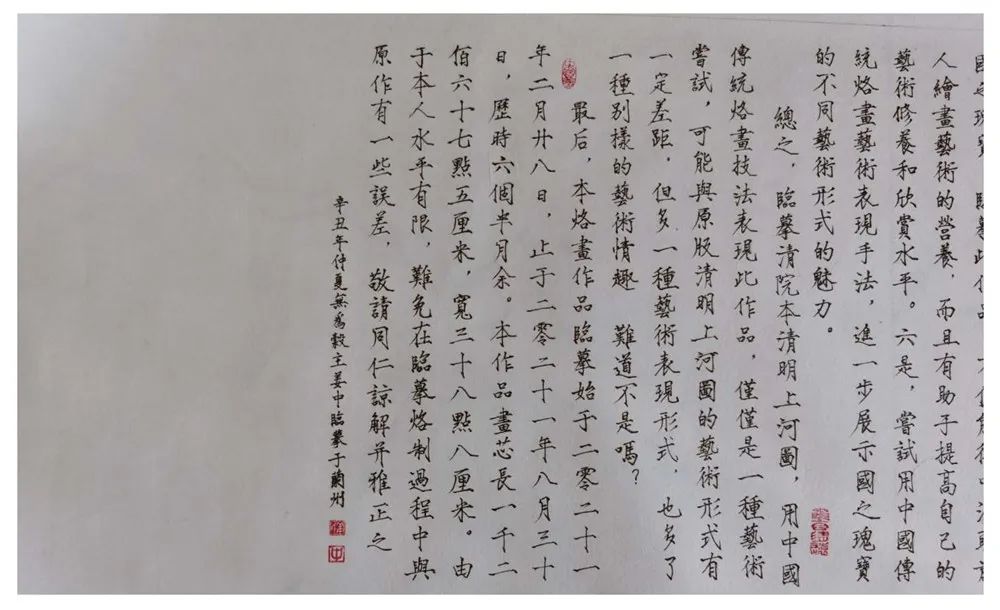 臨摹此作品
人繪畫藝術的營養，而且有助于提高自己的
藝術修養和欣賞水平。六是，嘗試用中國傳
統烙畫藝術表現手法，進一步展示國之瑰寶
的不同藝術形式的魅力。
總之，臨摹清院本清明上河圖，用中國
傳統烙畫技法表現此作品，僅僅是一種藝術
嘗試，可能與原版清明上河圖的藝術形式有
一定差距，但多一種藝術表現形式，也多了
一種別樣的藝術情趣 難道不是嗎？
最后，本烙畫作品臨摹始于二零二十一
年二月廿八日，止于二零二十一年八月三十
日，歷時六個半月余。本作品畫芯長一千二
佰六十七點五厘米，寬三十八點八厘米。由
于本人水平有限，難免在臨摹烙制過程中與
原作有一些誤差，敬請同仁諒解并雅正之
辛丑年仲夏無為穀主姜中臨摹于蘭州
中